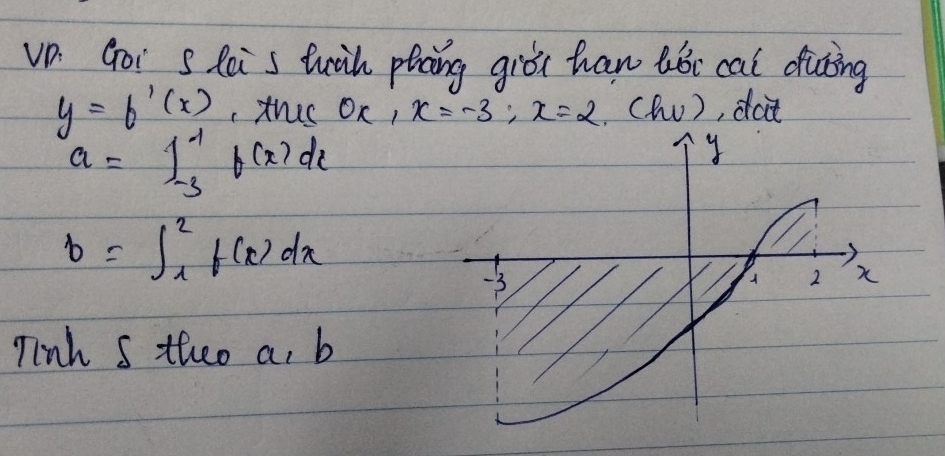 VD. Gọi S là S hình phẳng giới hạn bởi các đường
y = f'(x), trục Ox, x = -3; x = 2. (hv), đặt
a = ∫_{-3}^{1} f(x) dx
y
b = ∫_{1}^{2} f(x) dx
-3 1 2 x
Tính S theo a, b